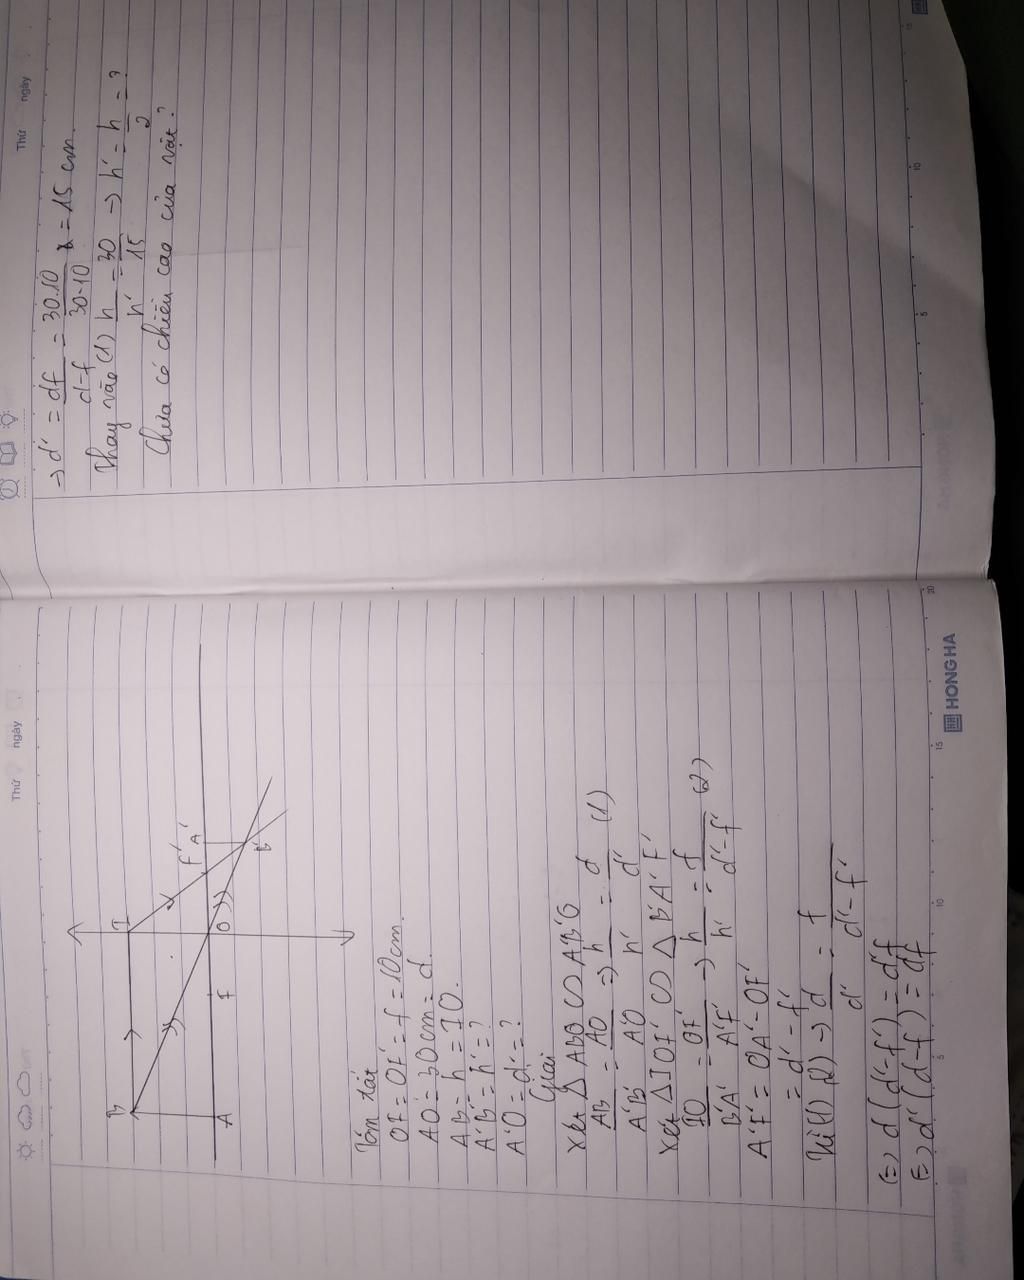 Thứ ngày
B
I
A
F
O
F'
A'
B'
Tóm tắt
OF = OF' = f = 10 cm.
AO = 30 cm = d.
AB = h = IO.
A'B' = h' = ?
A'O = d' = ?
Giải
Xét Δ ABO ∽ A'B'O
AB/A'B' = AO/A'O => h/h' = d/d' (1)
Xét Δ IOF' ∽ Δ B'A'F'
IO/B'A' = OF'/A'F' → h/h' = f/d'-f' (2)
A'F' = OA' - OF'
= d' - f'
Từ (1) (2) → d/d' = f/d'-f'
(=) d (d'-f') = d'f
(=) d' (d-f) = df
HONG HA
5
10
15
20
Thứ ngày
=> d' = df/d-f = 30.10/30-10 = 15 cm.
Thay vào (1) h/h' = 30/15 => h' = h/2 = ?
Chưa có chiều cao của vật?
5
10
15